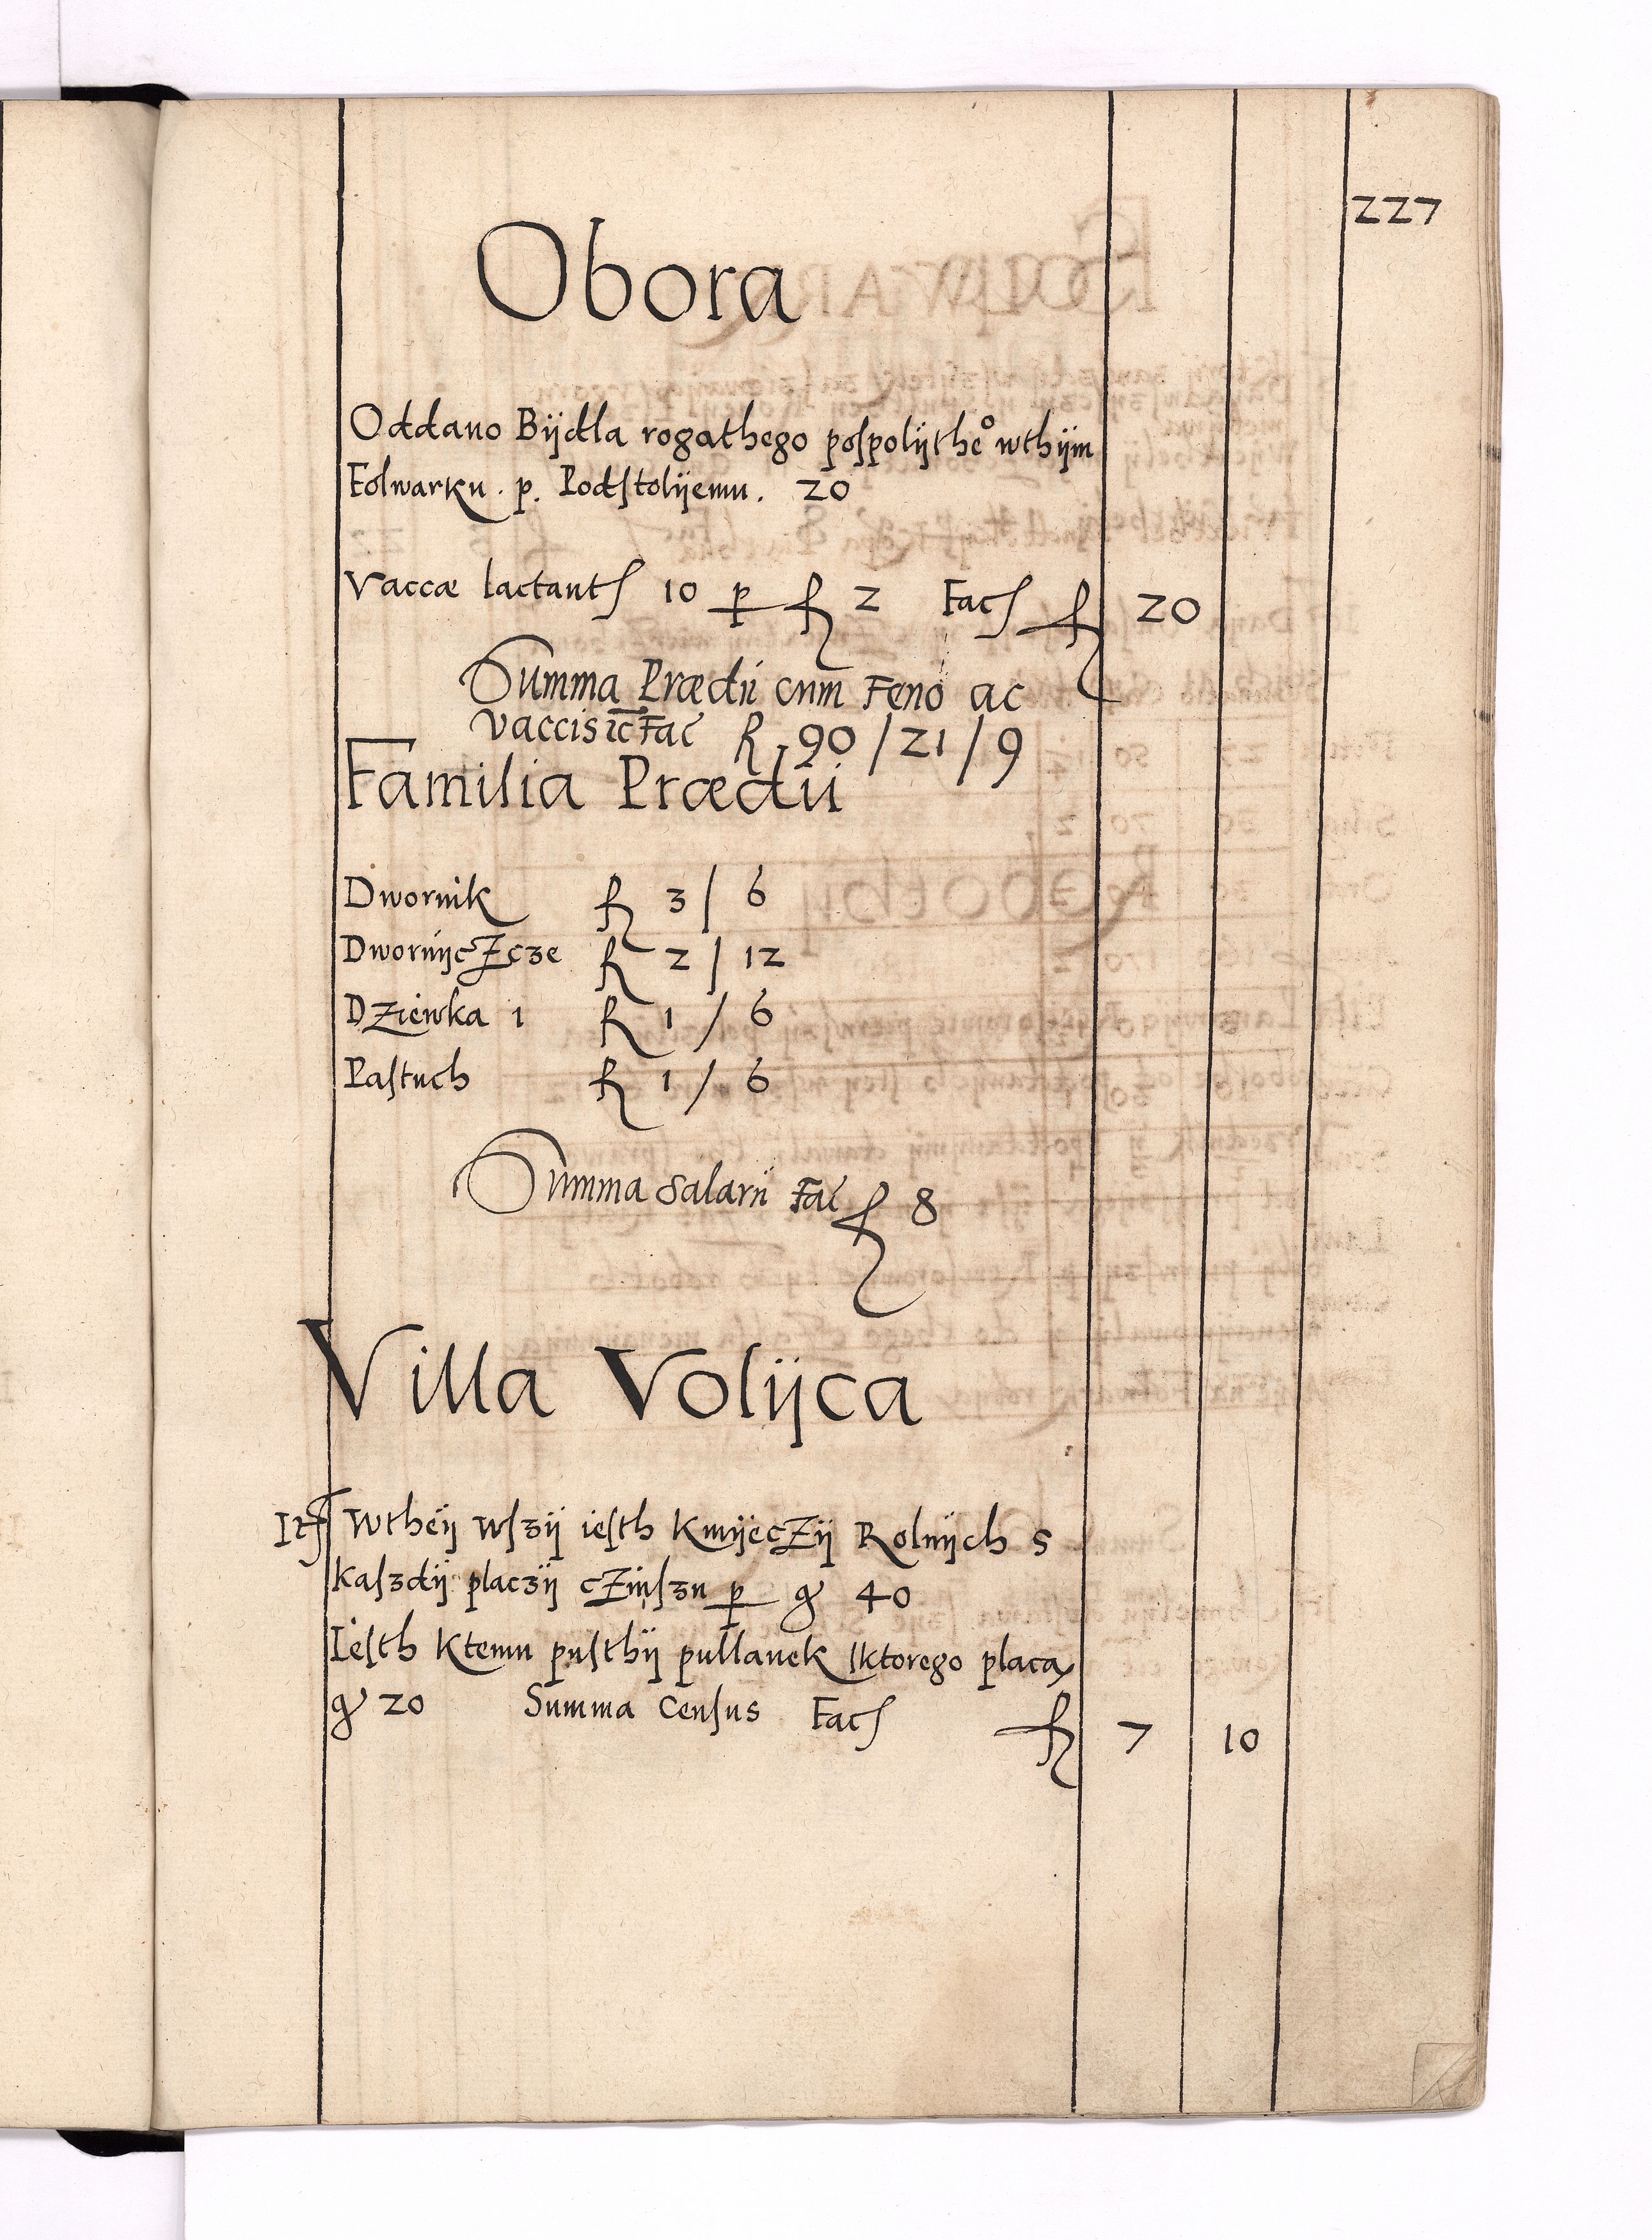 227
Obora
Oddano Bijdła rogathego poſpolijtheº wthijm
Folwarku . p. Podſtolijemu . 20
Vaccæ lactantſ 10 p fl 2 Facſ fl 20
Summa Prædii cum Feno ac
vaccis ic Fac fl 90 / 21 / 9
Familia Prædii
Dwornik fl 3 / 6
DwornijcZcze fl 2 / 12
DZiewka 1 fl 1 / 6
Paſtuch fl 1 / 6
Summa Salarii Fac fl 8
Villa Volijca
Itſ Wtheij Wſzij ieſth KmijecZij Rolnijch 5
Kaſzdij placzij cZinſzu p gr 40
Ieſth Ktemu puſthij pullanek ſktorego placa
gr 20 Summa Cenſus Facſ fl 7 10